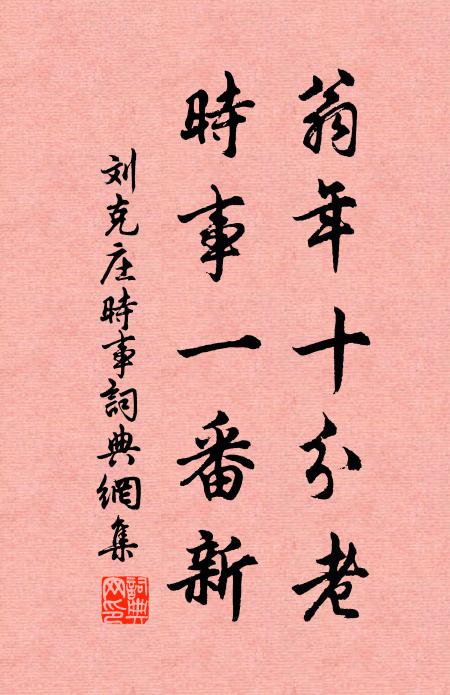 翁年十分老
時事一番新
刘克庄時事詞典網集
詞典網印